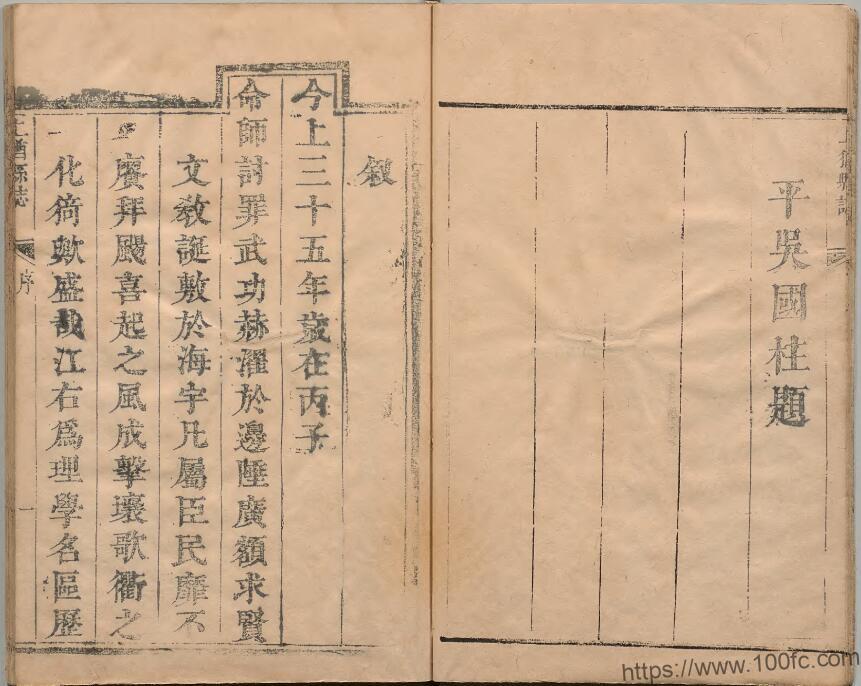 上猶縣誌
平吳國柱題
敘
今上三十五年歲在丙子
命師討罪武功赫濯於邊陲廣額求賢
文敎誕敷於海宇凡屬臣民靡不
賡拜颺喜起之風成擊壤歌衢之
化猗歟盛哉江右爲理學名區歷
上猶縣志 序 一
https://www.100fc.com